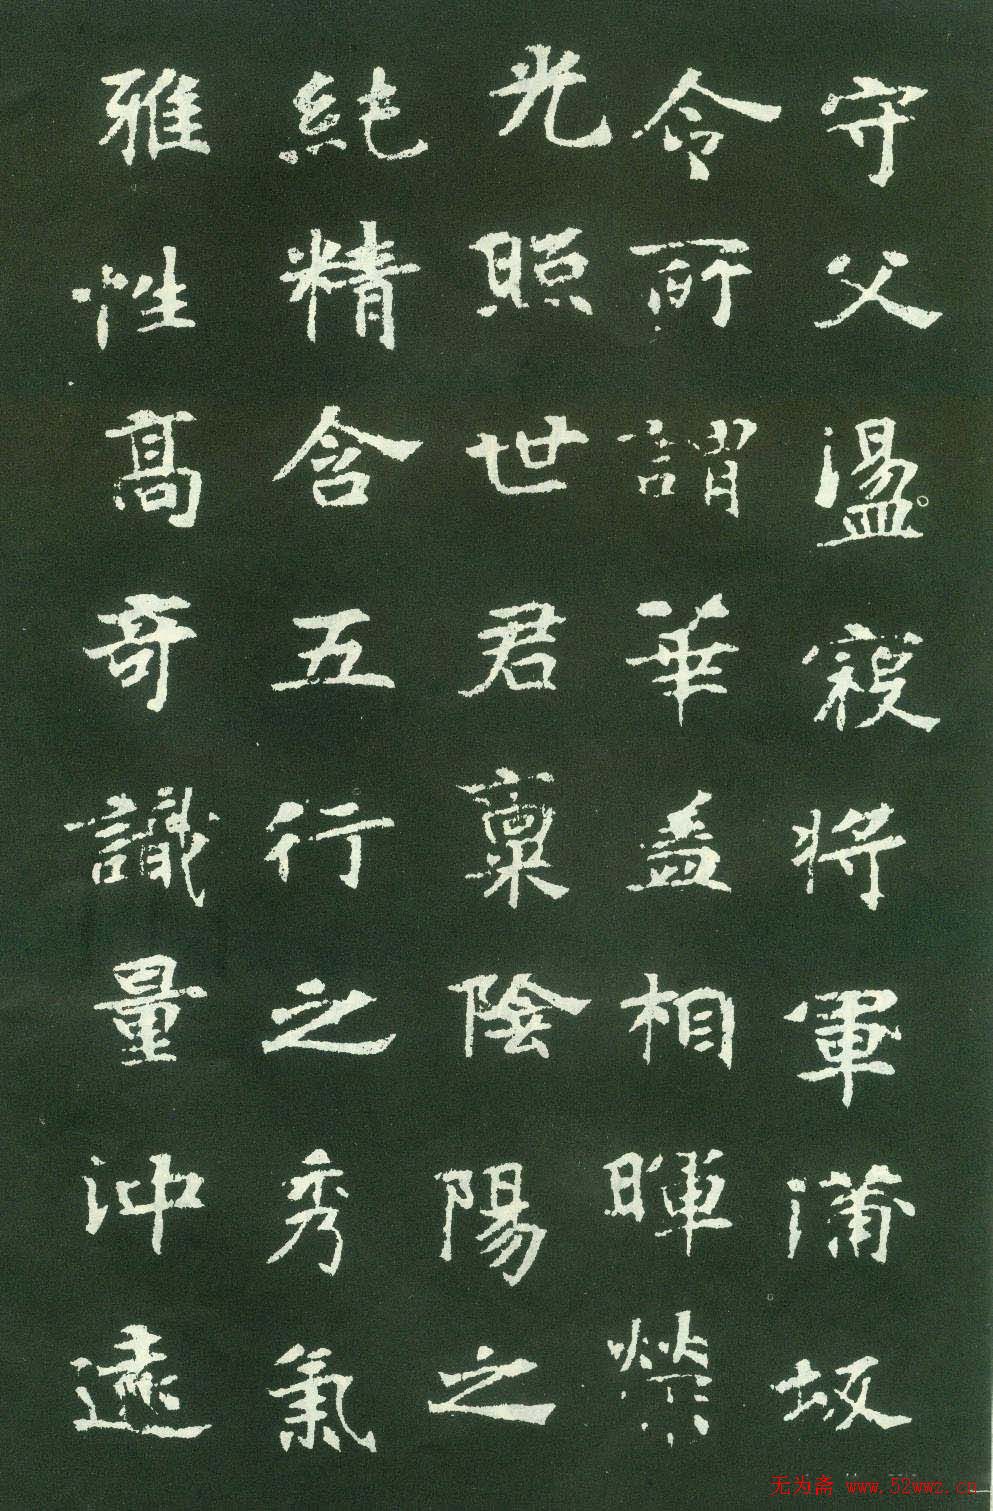 守父盪寇將軍蒲坂
令所謂華盖相暉榮
光照世君稟陰陽之
純精含五行之秀氣
雅性高奇識量沖遠
无为斋 www.52wwz.cn